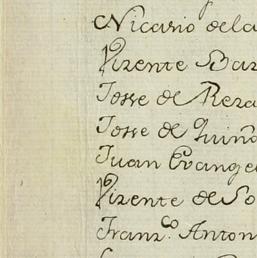 Nicasio de la
Vizente Bar
Josse de Reza
Josse de Quiño
Juan Evange
Vizente de So
Franz.co Anton